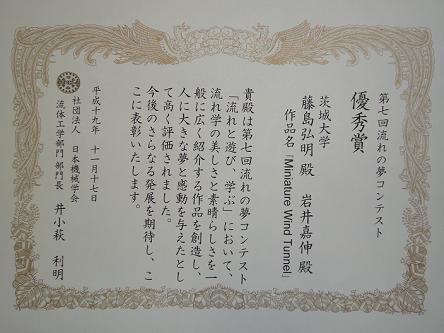 第七回流れの夢コンテスト
優秀賞
茨城大学
藤島弘明 殿　岩井嘉伸 殿
作品名「Miniature Wind Tunnel」
貴殿は第七回流れの夢コンテスト
「流れと遊び、学ぶ」において、
流れ学の美しさと素晴らしさを一
般に広く紹介する作品を創造し、
人に大きな夢と感動を与えたとし
て高く評価されました。
今後のさらなる発展を期待し、こ
こに表彰いたします。
平成十九年　十一月十七日
社団法人　日本機械学会
流体工学部門 部門長　井小萩　利明